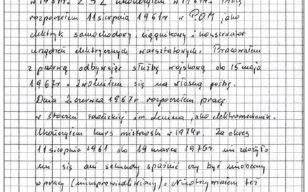 w 1957r. Z S Z ukończyłem w 1961r. Pracę
rozpocząłem 11 sierpnia 1961r w P.O.M jako
elektryk samochodowy ciągnikowy i konserwator
urządzeń elektrycznych warsztatowych. Pracowałem
z przerwą odbywając służbę wojskową do 15 maja
1967r. Zwolniłem się na własną prośbę.
Dnia 2 czerwca 1967r rozpocząłem pracę
w stoczni rzecznej im Lenina, jako elektromonter.
Ukończyłem kurs mistrzowski w 1974r. Za okres
11 sierpnia 1961 do 19 marca 1975r nie zdarzyło
mi się ani sekundy spóźnić czy być
w pracy Nie otrzymałem też